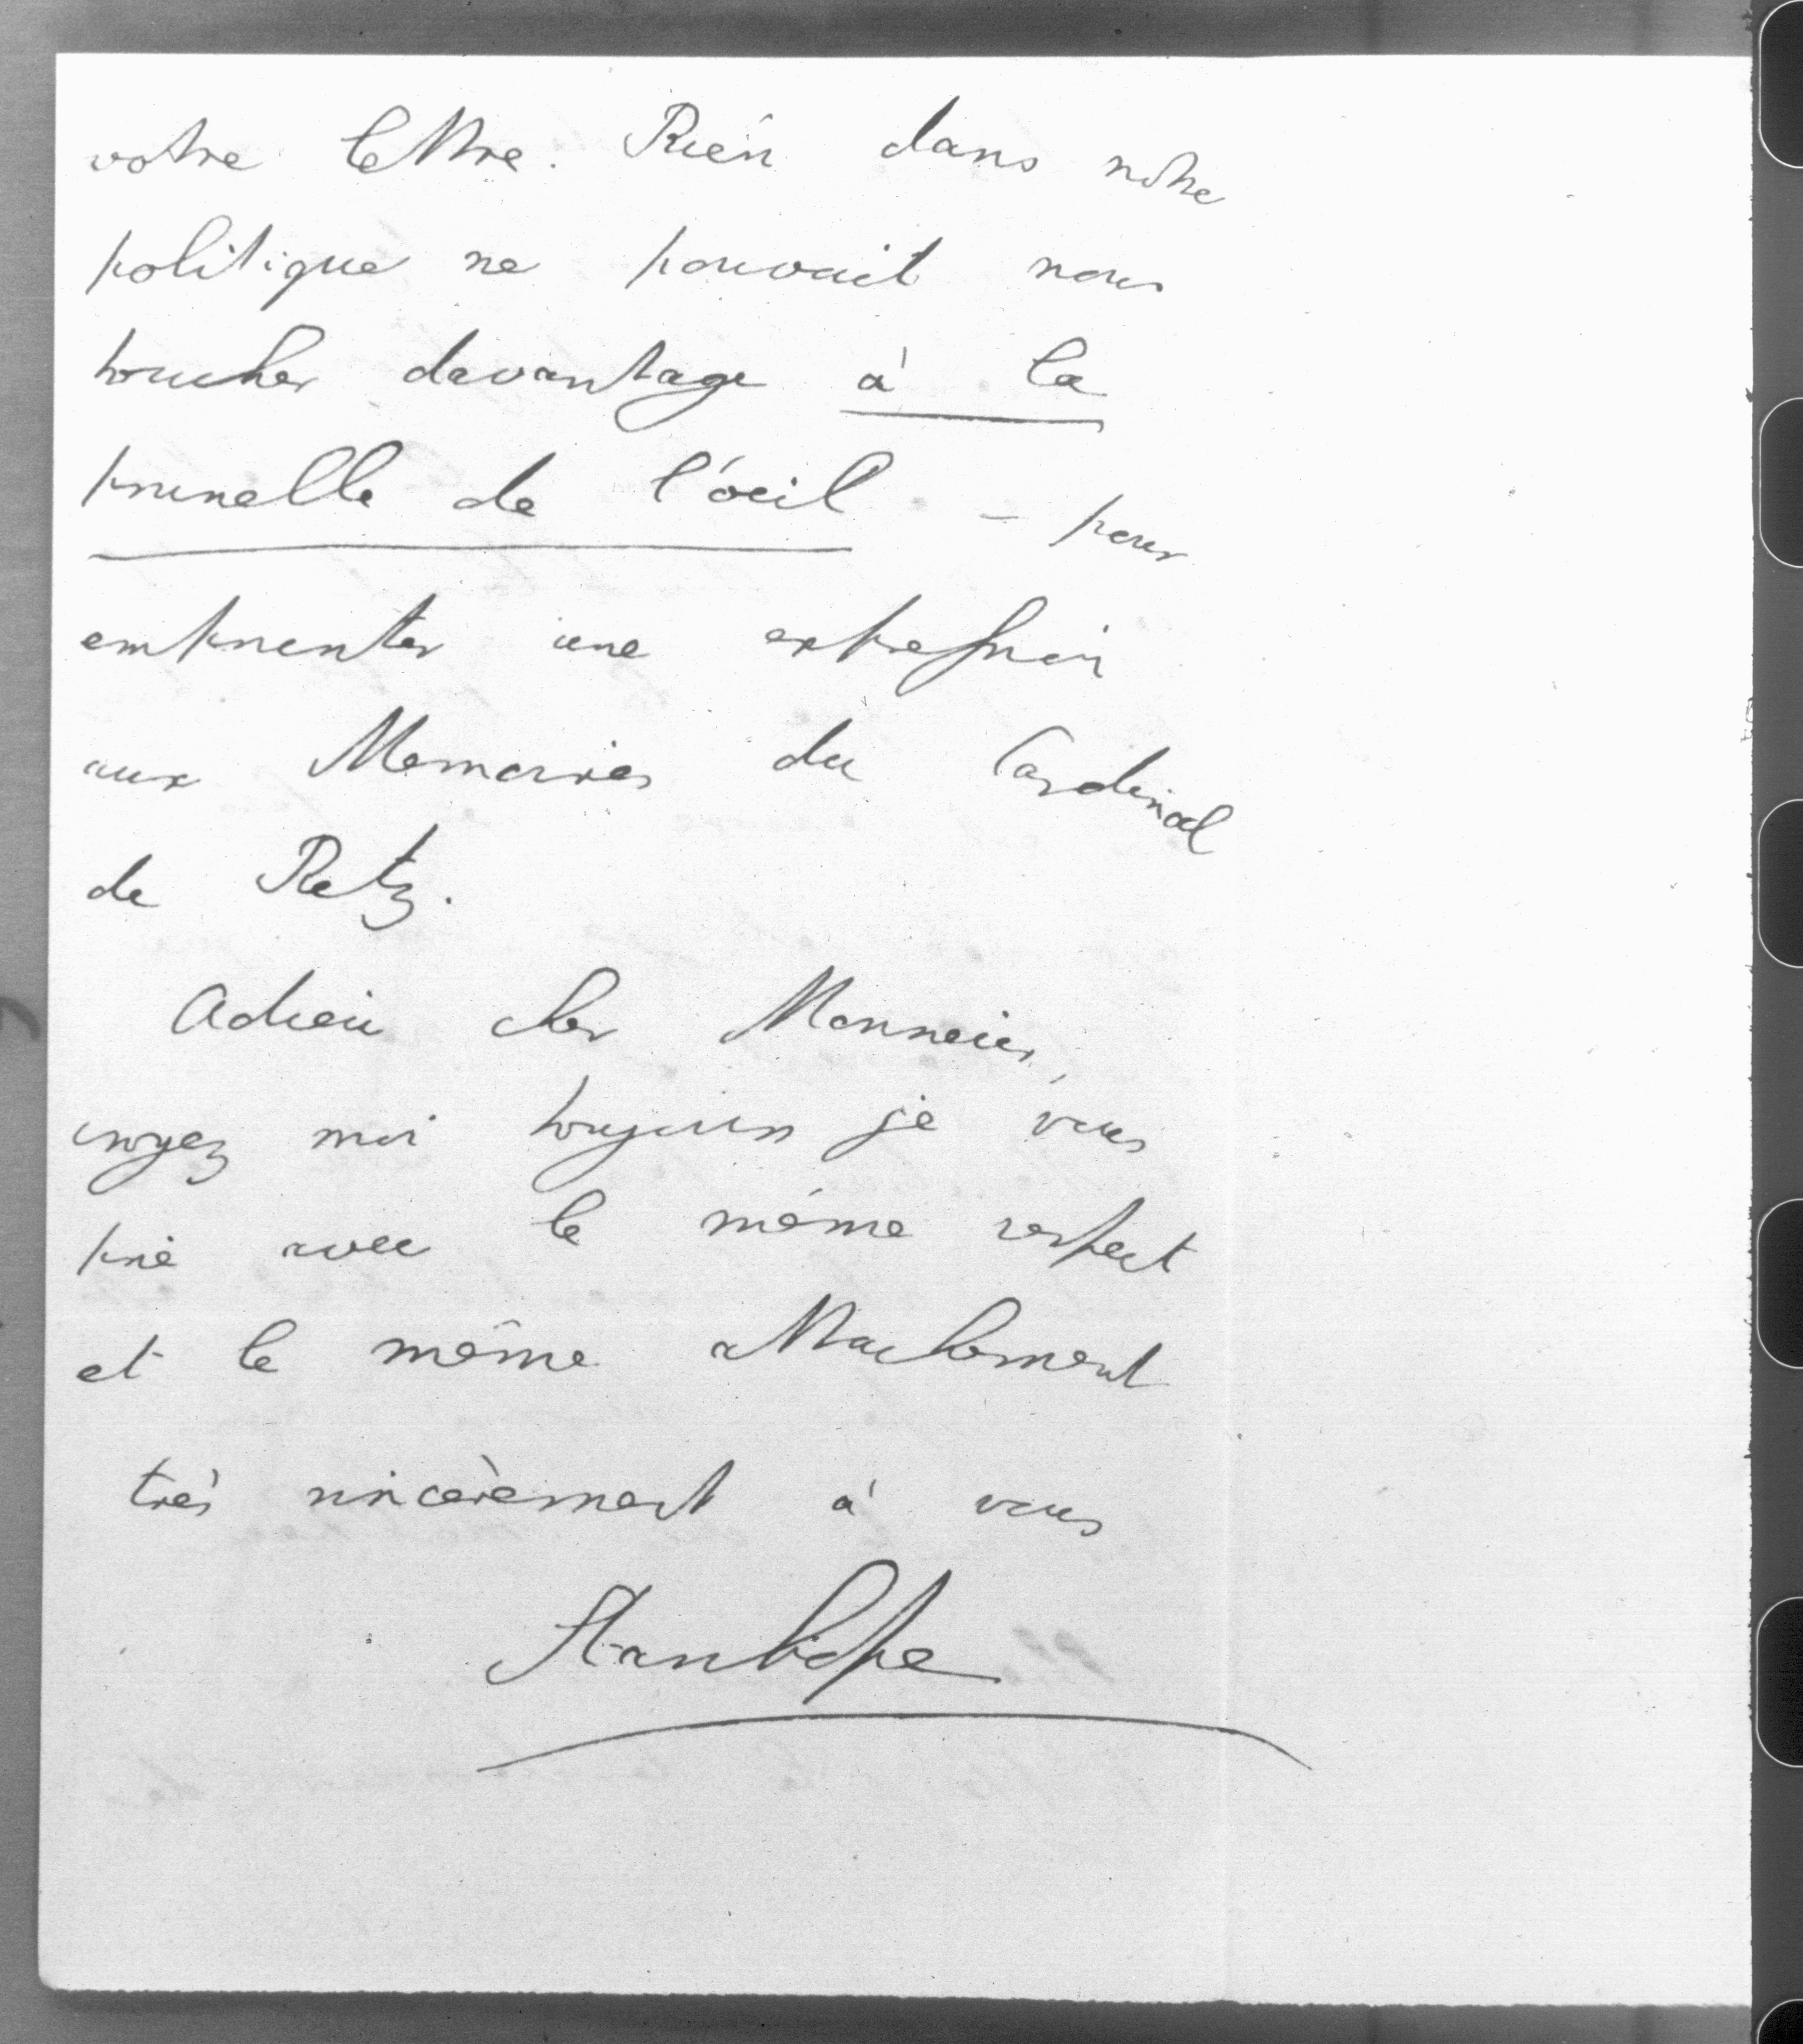 votre lettre. Rien dans notre
politique ne pouvait nous
toucher davantage à la
prunelle de l'oeil - pour
emprunter une expression
aux Memoires du Cardinal
de Retz.
Adieu cher Monsieur,
croyez moi toujours je vous
prie avec le même respect
et le même attachement
très sincèrement à vous
Stanhope